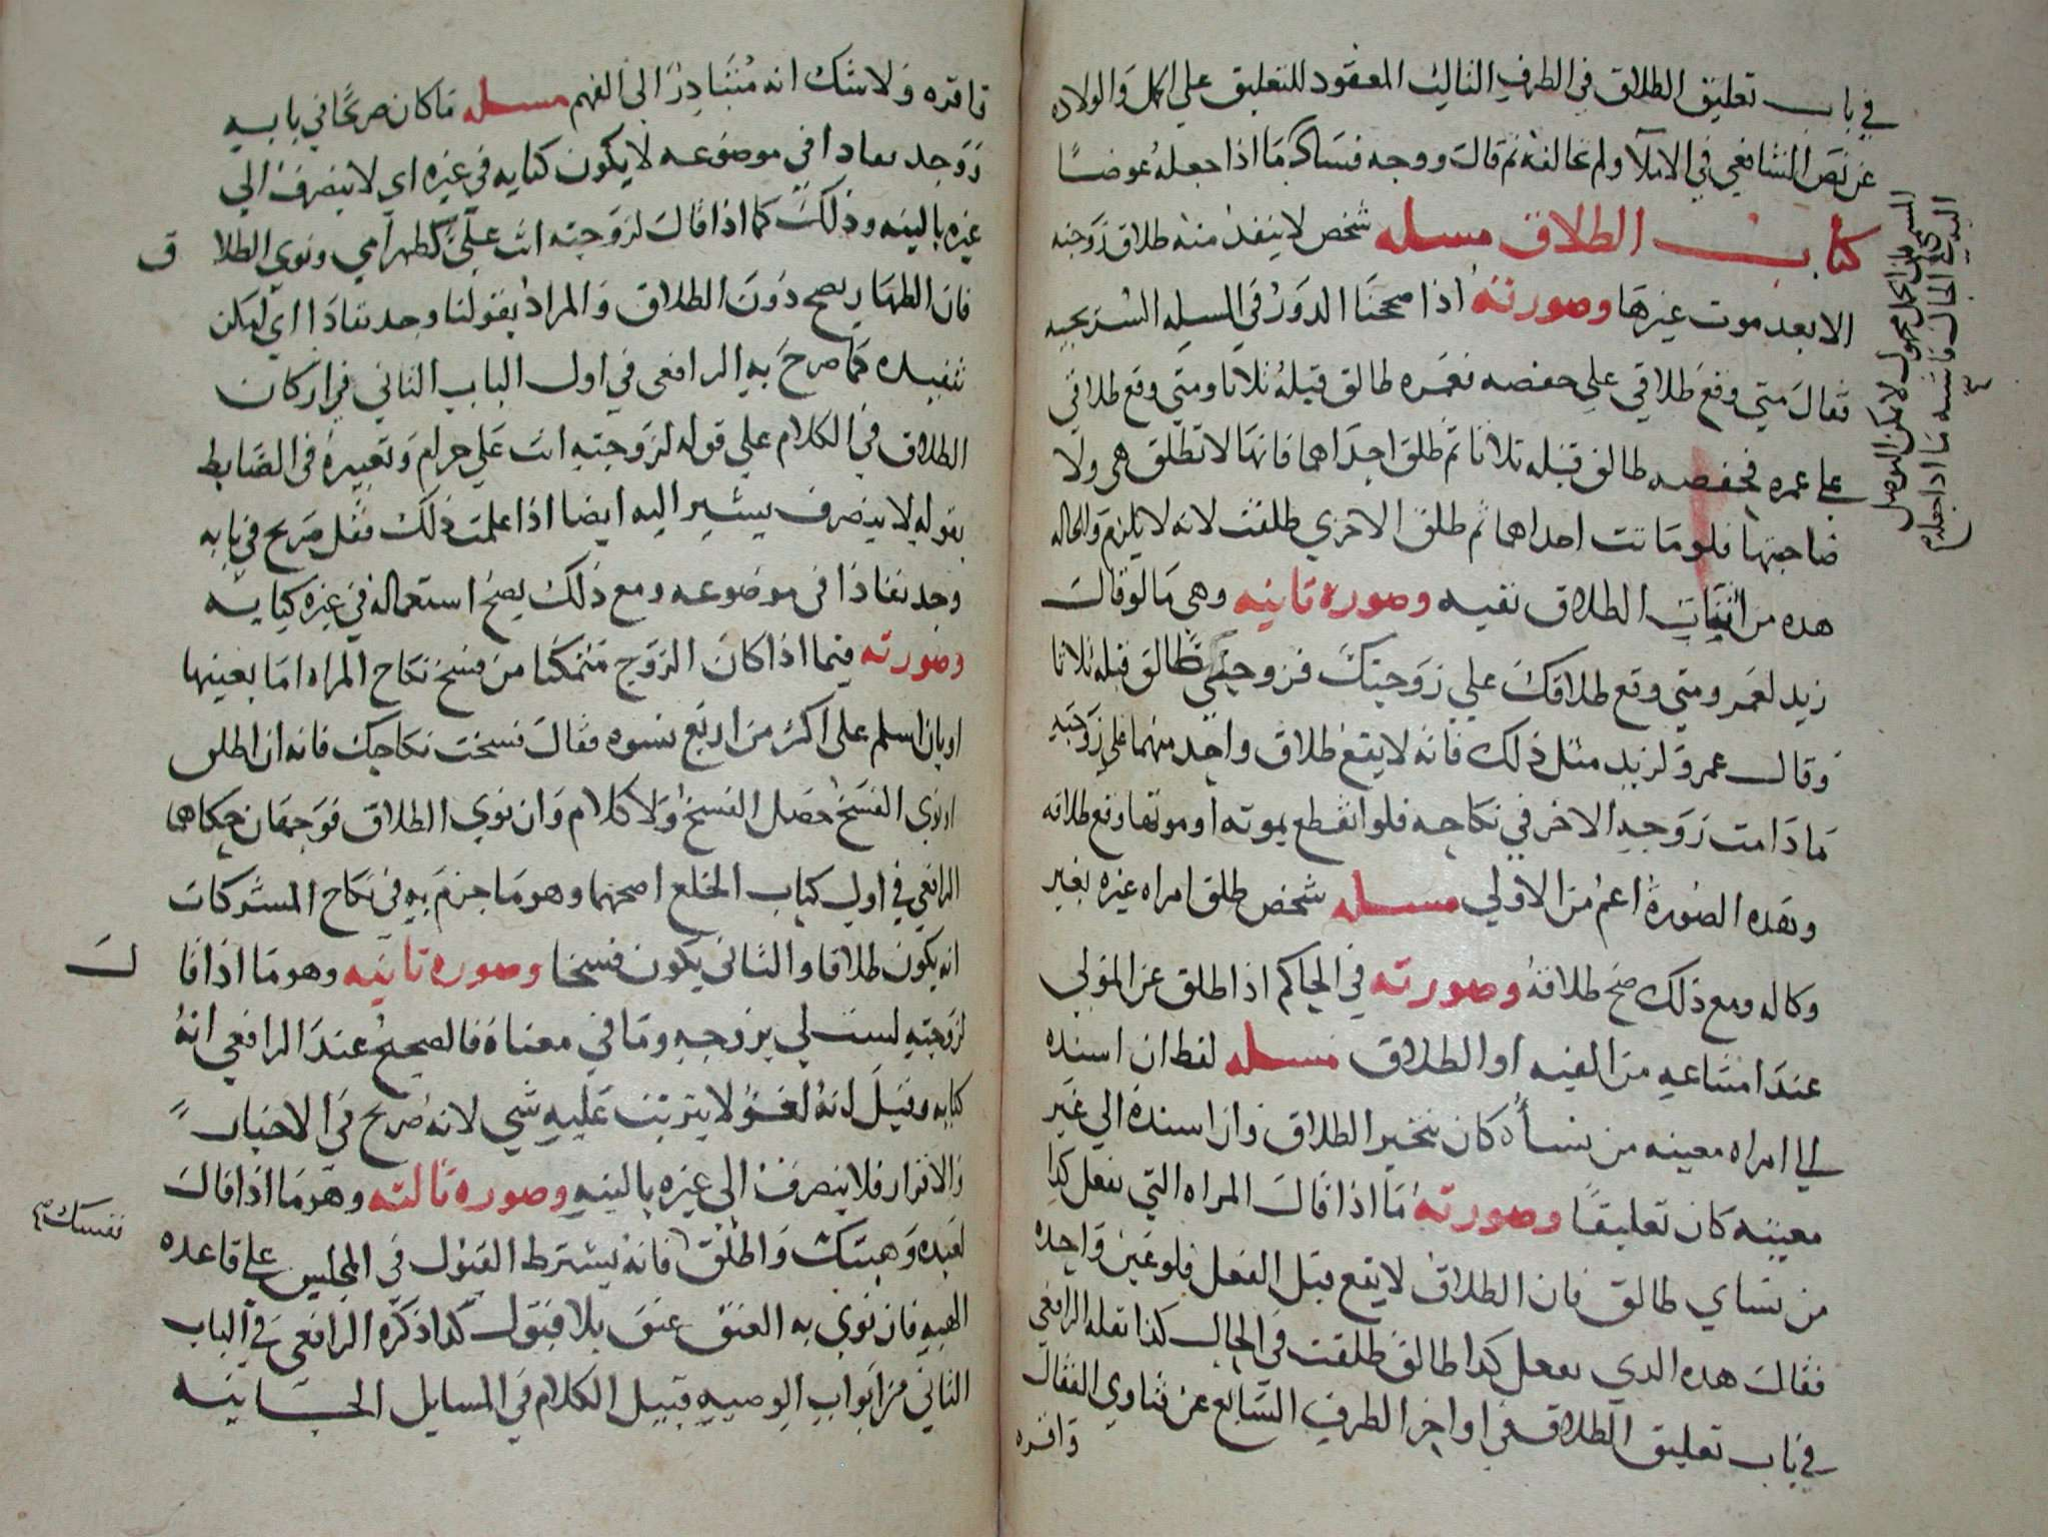 في باب تعليق الطلاق في الطرف الثالث المعقود للتعليق على الحمل والولاده
عن نص الشافعي في الاملآ ولم يخالفه ثم قال ووجه فساد ما اذا جعله عوضًا
كتاب الطلاق مسله شخص لا ينفذ منه طلاق زوجته
الا بعد موت غيرها وصورته اذا صححنا الدور في المسله السريجيه
فقال متي وقع طلاقي علي حفصه فعمره طالق قبله ثلاثا ومتي وقع طلاقي
علي عمره فحفصه طالق قبله ثلاثا ثم طلق احداهما فانها لا تطلق هي ولا
صاحبتها فلو ماتت احداهما ثم طلق الاخري طلقت لانه لا يلزم والحاله
هذه من اثبات الطلاق نفيه وصوره ثانيه وهي ما لو قال
زيد لعمرو متي وقع طلاقك علي زوجتك فزوجتي طالق قبله ثلاثا
وقال عمرو لزيد مثل ذلك فانه لا يقع طلاق واحد منهما علي زوجته
ما دامت زوجه الاخر في نكاحه فلو انقطع بموته او موتها وقع طلاقه
وهذه الصوره اعم من الاولي مسله شخص طلق امراه غيره بغير
وكاله ومع ذلك صح طلاقه وصورته في الحاكم اذا طلق عن المولي
عند امتناعه من الفيه او الطلاق مسله لفظ ان اسنده
الي امراه معينه من نسائه كان تنجيز الطلاق وان اسنده الي غير
معينه كان تعليقًا وصورته ما اذا قال المراه التي تفعل كذا
من نساي طالق فان الطلاق لا يقع قبل الفعل فلو عين واحده
فقال هذه الذي تفعل كذا طالق طلقت في الحال كذا نقله الرافعي
في باب تعليق الطلاق في اواخر الطرف السابع عن فتاوي القفال
واقره
لا يمكن التوصل
اليه في الحال فاشبه ما اذا جعله
واقره ولا شك انه متبادر الى الفهم مسله ما كان صريحًا في بابه
ووجد نفاذا في موضوعه لا يكون كنايه في غيره اي لا ينصرف الي
غيره بالنيه وذلك كما اذا قال لزوجته انت علي كظهر امي ونوي الطلا
ق
فان الظهار يصح دون الطلاق والمراد بقولنا وجد نفاذا اي امكن
تنفيذه كما صرح به الرافعي في اول الباب الثاني في اركان
الطلاق في الكلام علي قوله لزوجته انت علي حرام وتعبيره في الضابط
بقوله لا ينصرف يشير اليه ايضا اذا علمت ذلك فقل صريح في بابه
وجد نفاذا في موضوعه ومع ذلك يصح استعماله في غيره كنايه
وصورته فيما اذا كان الزوج متمكنا من فسخ نكاح المراه اما بعيبها
او بان اسلم على اكثر من اربع نسوه فقال فسخت نكاحك فانه ان اطلق
او نوي الفسخ حصل الفسخ ولا كلام وان نوي الطلاق فوجهان حكاهما
الرافعي في اول كتاب الخلع اصحهما وهو ما جزم به في نكاح المشركات
انه يكون طلاقا والثاني يكون فسخا وصوره ثانيه وهو ما اذا قا
ل
لزوجته لست لي بزوجه وما في معناه فالصحيح عند الرافعي انه
كنايه وقيل انه لغو لا يترتب عليه شي لانه صريح في الاخبار
والاقرار فلا ينصرف الى غيره بالنيه وصوره ثالثه وهو ما اذا قال
لعبده وهبتك واطلق فانه يشترط القبول في المجلس علي قاعده
نفسك صح
الهبه فان نوي به العتق عتق بلا قبول كذا ذكره الرافعي في الباب
الثاني من ابواب الوصيه قبيل الكلام في المسايل الحسابيه